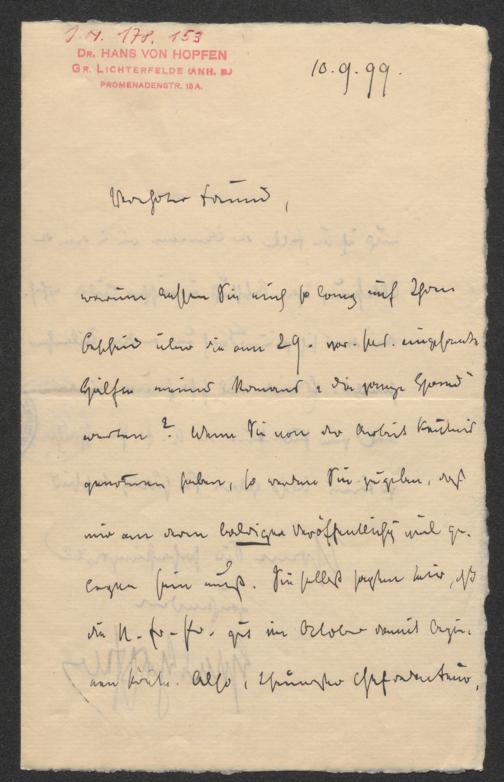 J.N. 178.153
DR. HANS VON HOPFEN
GR. LICHTERFELDE (ANH. B.)
PROMENADENSTR. 13A.
10.9.99.
Verehrter Freund,
warum lassen Sie mich so lang auf Ihren
Bescheid über die am 29. vor. eingesandte
Hälfte meines Romans „die ganze
warten? Wenn Sie von der Arbeit Kenntnis
genommen haben, so werden Sie zugeben, daß
mir an deren baldiger Veröffentlichg viel ge-
legen sein muß. Sie selbst sagten mir, daß
die N. fr. Pr. gut im October damit begin-
nen könte. Also, Chefredacteur,